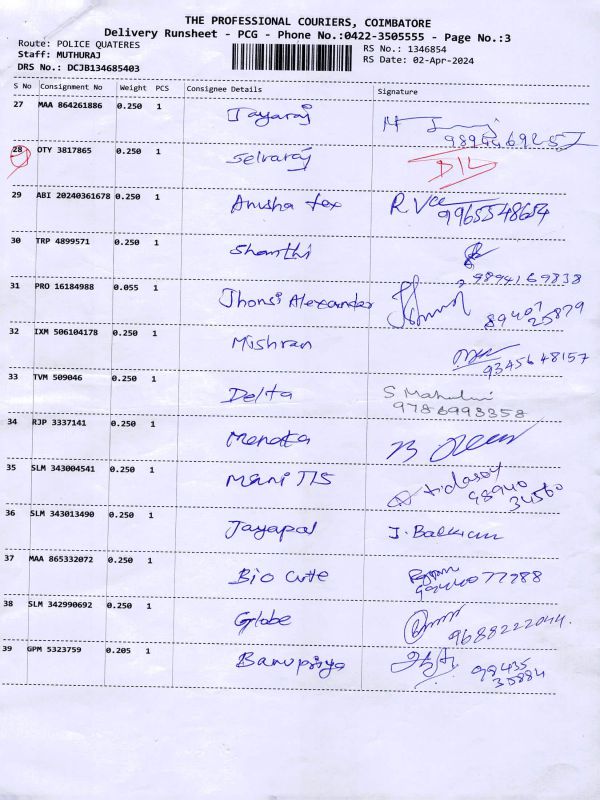 THE PROFESSIONAL COURIERS, COIMBATORE
Delivery Runsheet - PCG - Phone No.:0422-3505555 - Page No.:3
Route: POLICE QUATERES
RS No.: 1346854
Staff: MUTHURAJ
RS Date: 02-Apr-2024
DRS No.: DCJB134685403
S No Consignment No Weight PCS Consignee Details Signature
27 MAA 864261886 0.250 1 Jayaraj
28 OTY 3817865 0.250 1 Selvaraj DIL
29 ABI 20240361678 0.250 1 Anusha tex
9965548654
30 TRP 4899571 0.250 1 Shanthi
9894169838
31 PRO 16184988 0.055 1 Jhonsi Alexander
89407
25879
32 IXM 506104178 0.250 1 Mishran
9345648157
33 TVM 509046 0.250 1 Delta
9786993358
34 RJP 3337141 0.250 1
35 SLM 343004541 0.250 1 Mani TTS
98940
34560
36 SLM 343013490 0.250 1 Jayapal
37 MAA 865332072 0.250 1 Bio Cute
9944077288
38 SLM 342990692 0.250 1 Globe
9688222044.
39 GPM 5323759 0.205 1 Banupriya
98435
35884